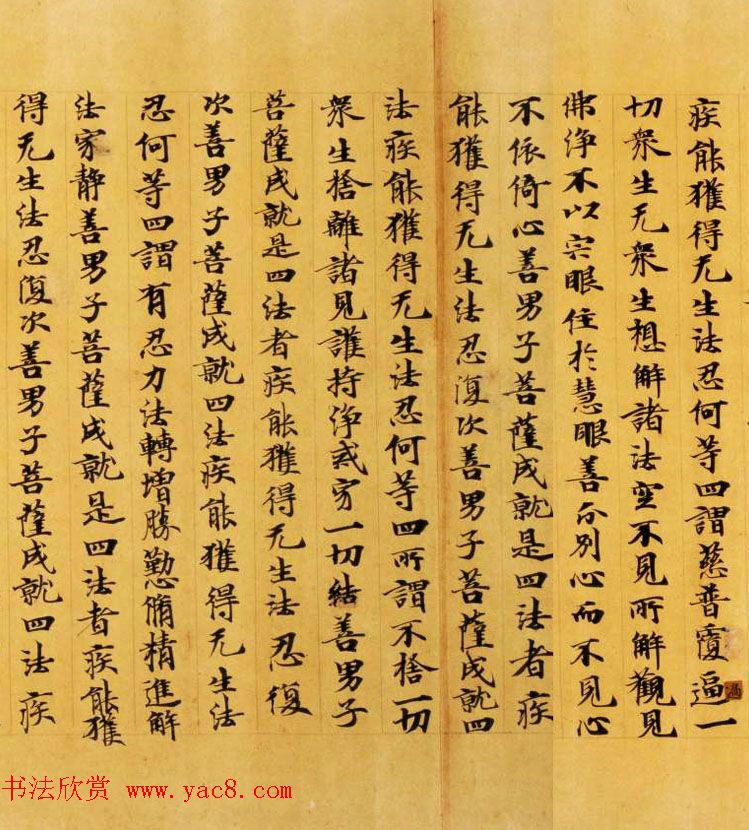 疾能獲得无生法忍何等四謂慈普覆遍一
切衆生无衆生想解諸法空不見所解觀見
佛浄不以宍眼住於慧眼善分別心而不見心
不依倚心善男子菩薩成就是四法者疾
能獲得无生法忍復次善男子菩薩成就四
法疾能獲得无生法忍何等四所謂不捨一切
衆生捨離諸見護持浄戒穷一切結善男子
菩薩成就是四法者疾能獲得无生法忍復
次善男子菩薩成就四法疾能獲得无生法
忍何等四謂有忍力法轉增勝懃脩精進解
法家静善男子菩薩成就是四法者疾能獲
得无生法忍復次善男子菩薩成就四法疾
书法欣赏 www.yac8.com